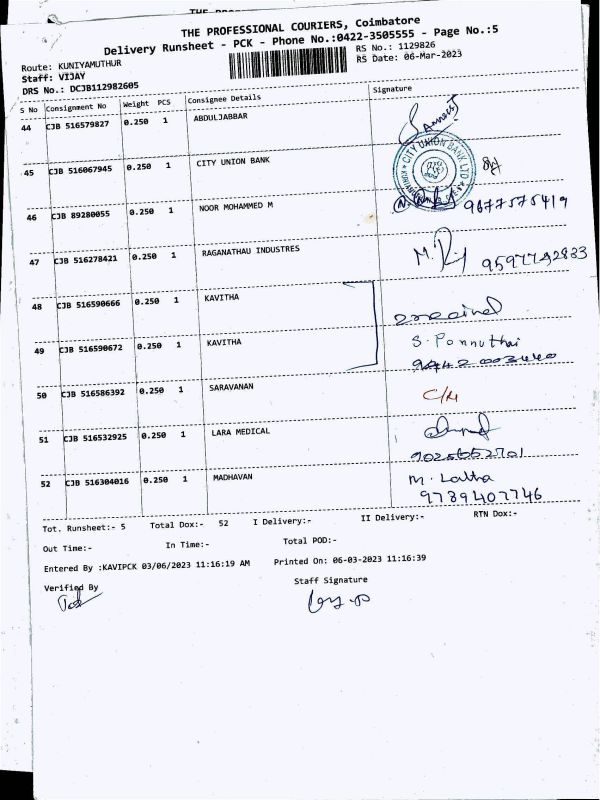 THE PROFESSIONAL COURIERS, Coimbatore
Delivery Runsheet - PCK - Phone No.:0422-3505555 - Page No.:5
Route: KUNIYAMUTHUR
RS No.: 1129826
Staff: VIJAY
RS Date: 06-Mar-2023
DRS No.: DCJB112982605
S No Consignment No Weight PCS Consignee Details Signature
44 CJB 516579827 0.250 1 ABDULJABBAR
45 CJB 516067945 0.250 1 CITY UNION BANK
CITY UNION BANK LTD
46 CJB 89280055 0.250 1 NOOR MOHAMMED M 9677575419
47 CJB 516278421 0.250 1 RAGANATHAU INDUSTRES 9597792833
48 CJB 516590666 0.250 1 KAVITHA
49 CJB 516590672 0.250 1 KAVITHA S. Ponnuthai
50 CJB 516586392 0.250 1 SARAVANAN
51 CJB 516532925 0.250 1 LARA MEDICAL
52 CJB 516304016 0.250 1 MADHAVAN M. Latha
9789407746
Tot. Runsheet:- 5 Total Dox:- 52 I Delivery:- II Delivery:- RTN Dox:-
Out Time:- In Time:- Total POD:-
Entered By :KAVIPCK 03/06/2023 11:16:19 AM Printed On: 06-03-2023 11:16:39
Verified By Staff Signature